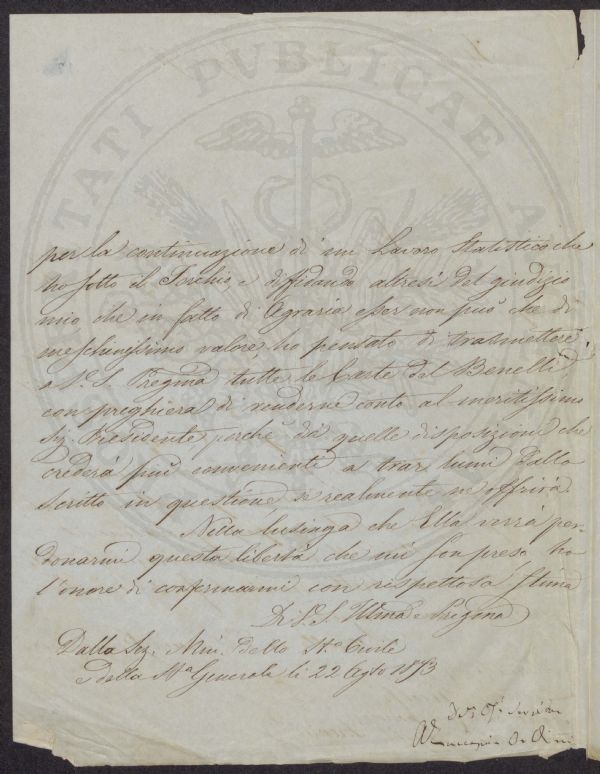 TATI PUBLICAE
per la continuazione di un Lavoro Statistico che
ho sotto il Torchio, e diffidando altresì del giudizio
mio, che in fatto di Agraria esser non può che di
meschinissimo valore, ho pensato di trasmettere
a V. S. Pregma tutte le Carte del Benelli
con preghiera di renderne conto al meritissimo
Sig. Presidente perchè dà quelle disposizioni che
crederà più conveniente a trar lumi dallo
scritto in questione, se realmente ne offrirà.
Nella lusinga che Ella vorrà per-
donarmi questa libertà che mi son preso, ho
l'onore di confermarmi con rispettosa stima
Di V. S. Illma e Pregma
Dalla Sez. Min. dello Sto Civile
Della Generale li 22 Agto